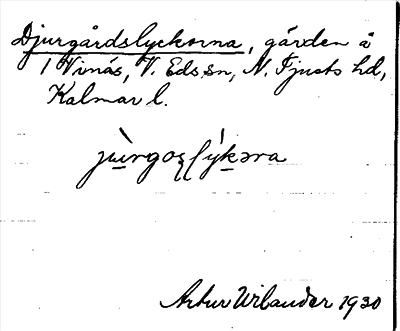 Djurgårdslyckorna, gärden å
1 Vinäs, V. Eds sn, N. Tjusts hd,
Kalmar l.
Artur Urbander 1930